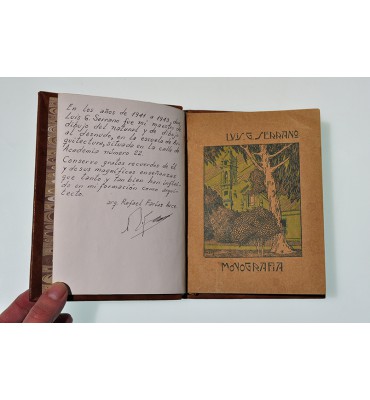 En los años de 1941 a 1943, don
Luis G. Serrano fue mi maestro de
dibujo del natural y de dibujo
al desnudo, en la escuela de Ar-
quitectura, situada en la calle de
Academia número 22.
Conservo gratos recuerdos de él
y de sus magníficas enseñanzas
que tanto y tan bien han influi-
do en mi formación como arqui-
tecto.
arq. Rafael Farías
LUIS G SERRANO
MONOGRAFIA